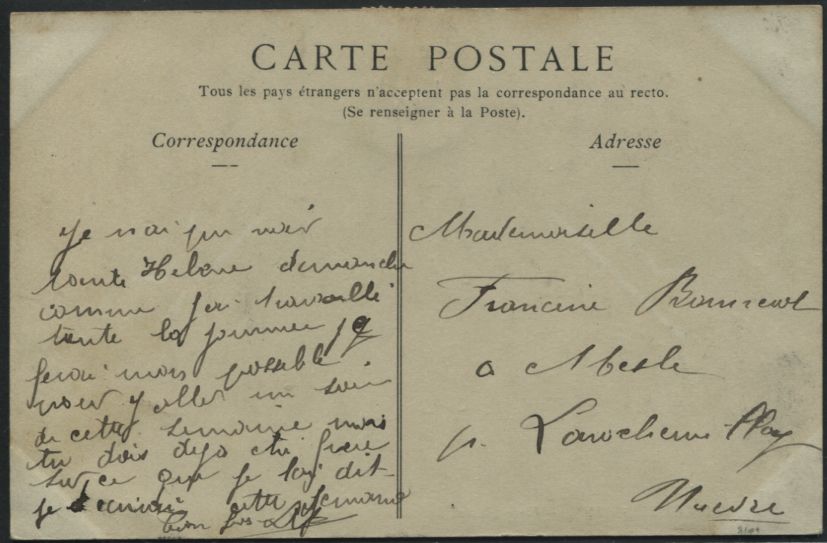 CARTE POSTALE
Tous les pays étrangers n'acceptent pas la correspondance au recto.
(Se renseigner à la Poste).
Correspondance
Adresse
Je n'ai pu voir
tante Helene dimanche
comme j'ai travaillé
toute la journee je
ferai mon possible
pour y aller un soir
de cette semaine mais
tu dois deja etre fixee
sur ce que je lui dit
je cette semaine
Bon
Mademoiselle
Francine
a Mesle
p. Laroche Mlay
Nievre